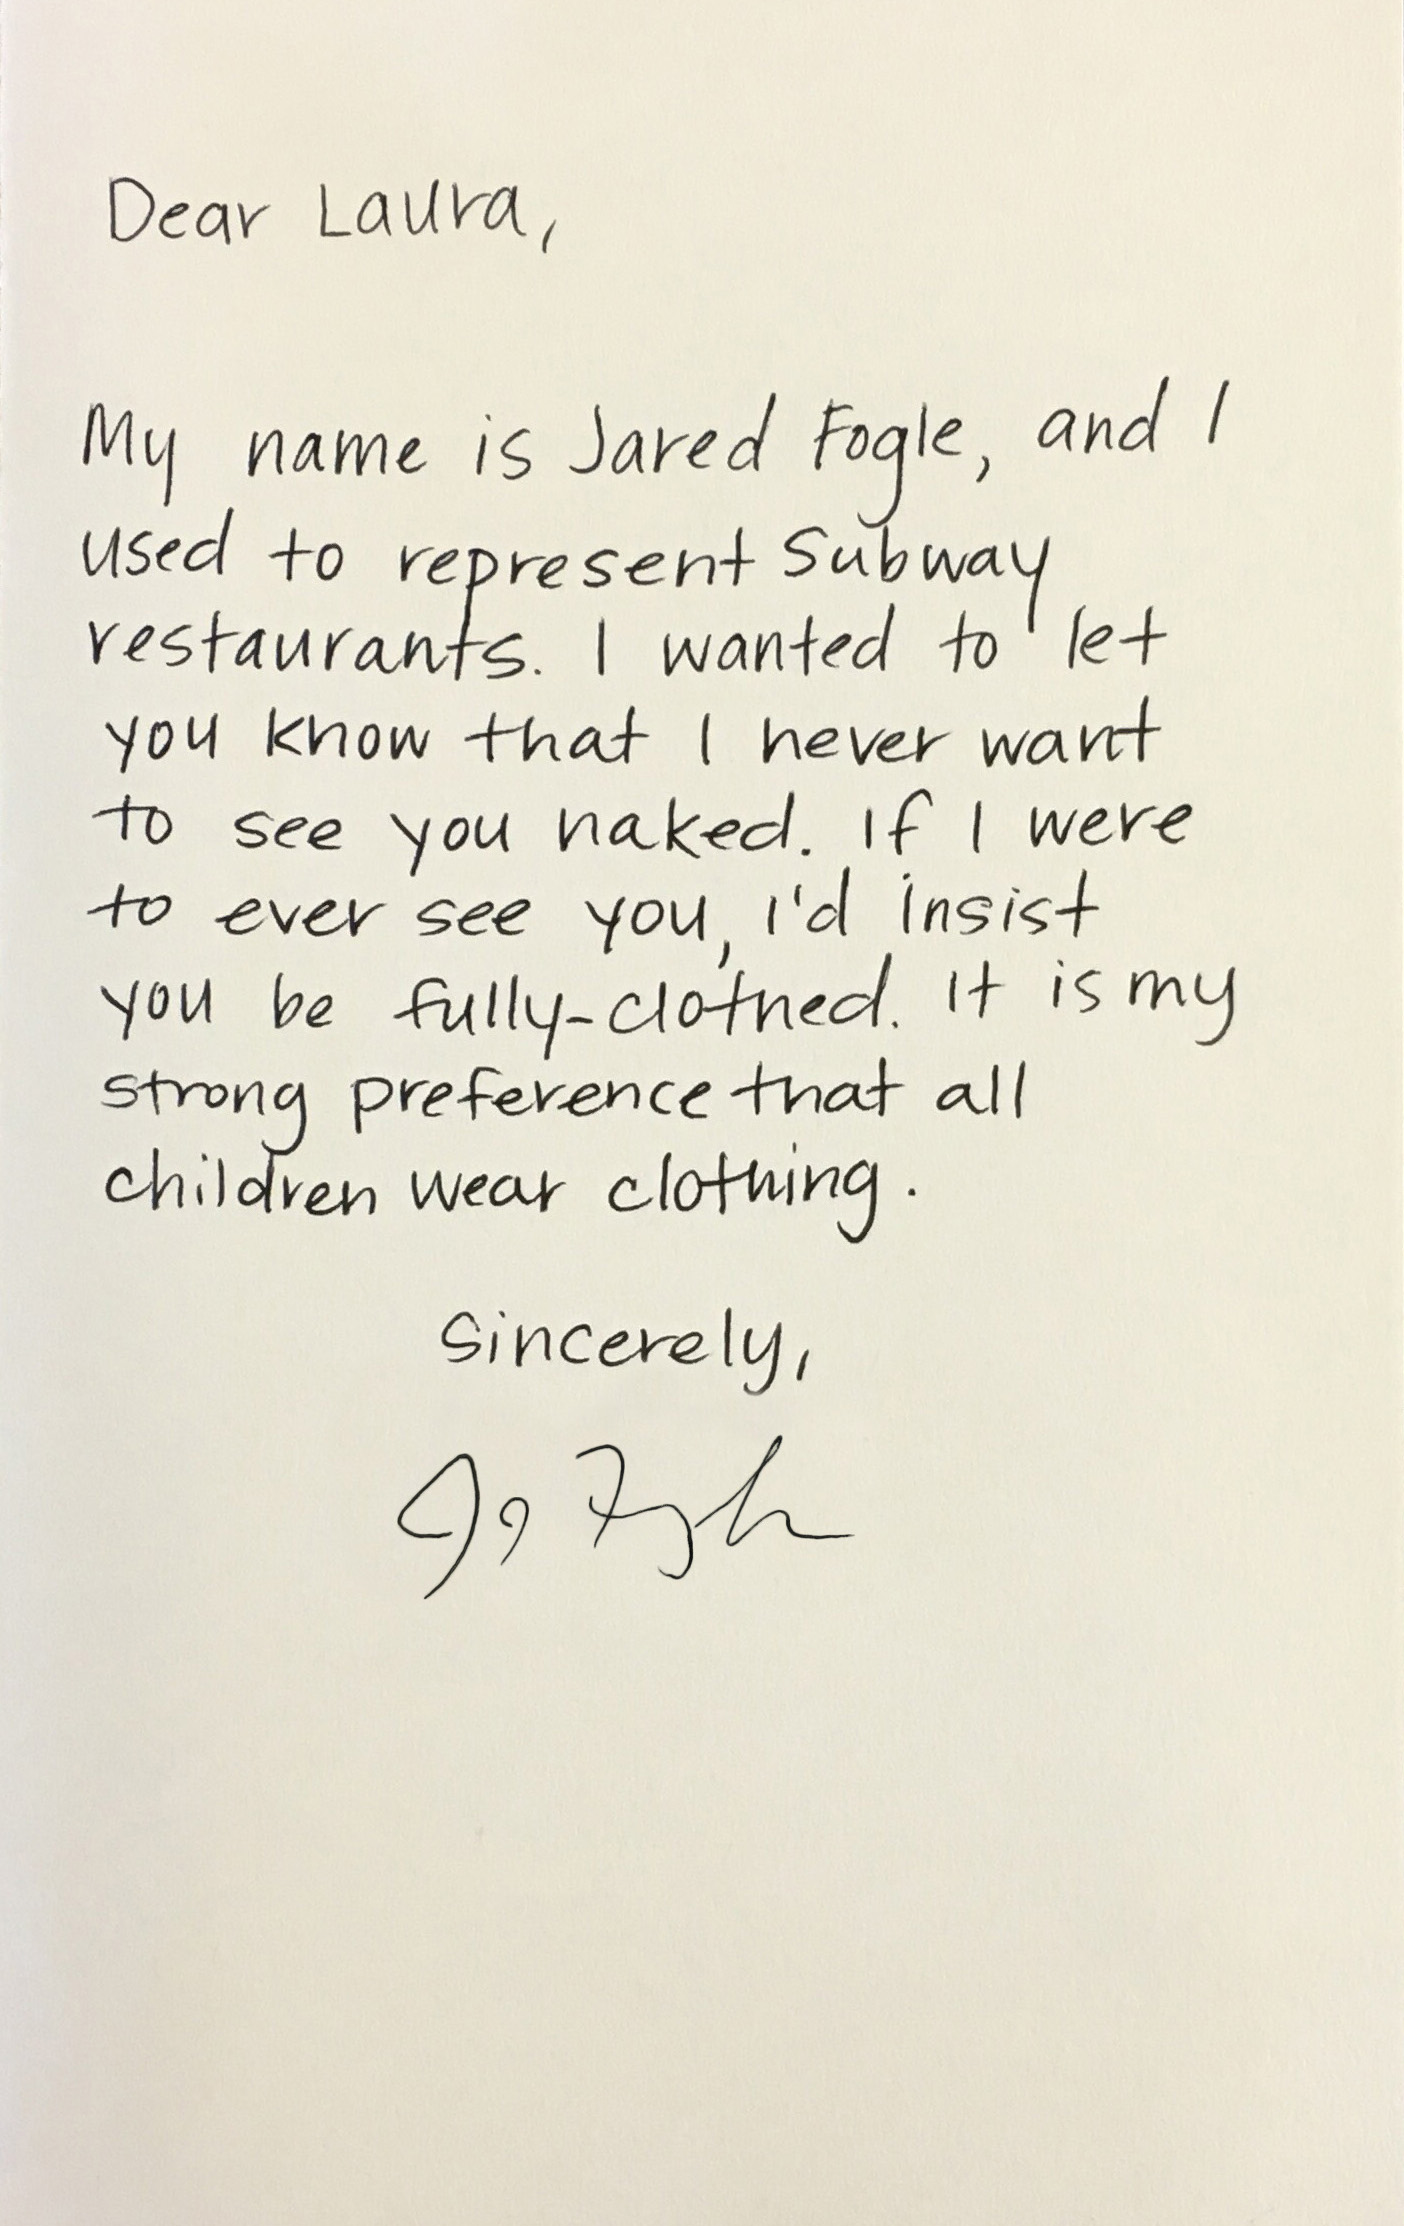 Dear Laura,
My name is Jared Fogle, and I
used to represent Subway
restaurants. I wanted to let
you know that I never want
to see you naked. If I were
to ever see you, I'd insist
you be fully-clothed. It is my
strong preference that all
children wear clothing.
Sincerely,